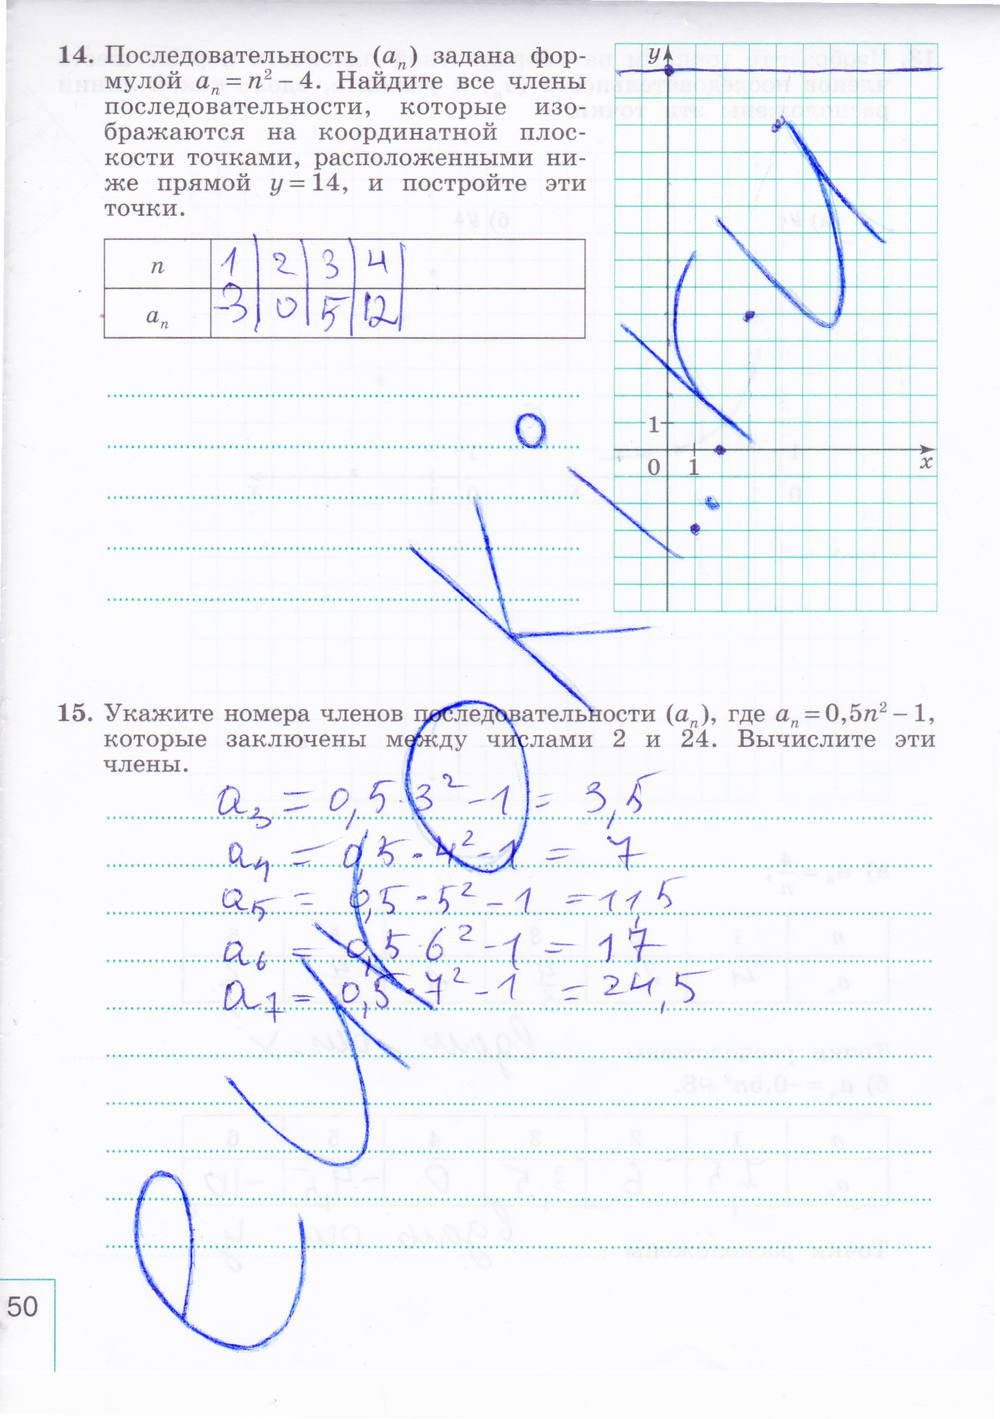 14. Последовательность (aₙ) задана фор-
мулой aₙ = n² – 4. Найдите все члены
последовательности, которые изо-
бражаются на координатной плос-
кости точками, расположенными ни-
же прямой y = 14, и постройте эти
точки.
n 1 2 3 4
aₙ -3 0 5 12
y
1
0 1 x
15. Укажите номера членов последовательности (aₙ), где aₙ = 0,5n² – 1,
которые заключены между числами 2 и 24. Вычислите эти
члены.
a₃ = 0,5·3² – 1 = 3,5
a₄ = 0,5·4² – 1 = 7
a₅ = 0,5·5² – 1 = 11,5
a₆ = 0,5·6² – 1 = 17
a₇ = 0,5·7² – 1 = 24,5
50